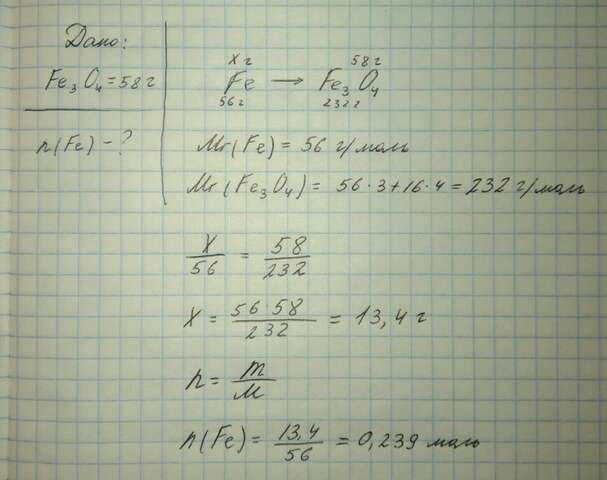 Дано:
Fe₃O₄ = 58 г
n(Fe) - ?
x г 58 г
Fe → Fe₃O₄
56 г 232 г
Mr(Fe) = 56 г/моль
Mr(Fe₃O₄) = 56·3+16·4 = 232 г/моль
X/56 = 58/232
X = 56·58/232 = 13,4 г
n = m/M
n(Fe) = 13,4/56 = 0,239 моль